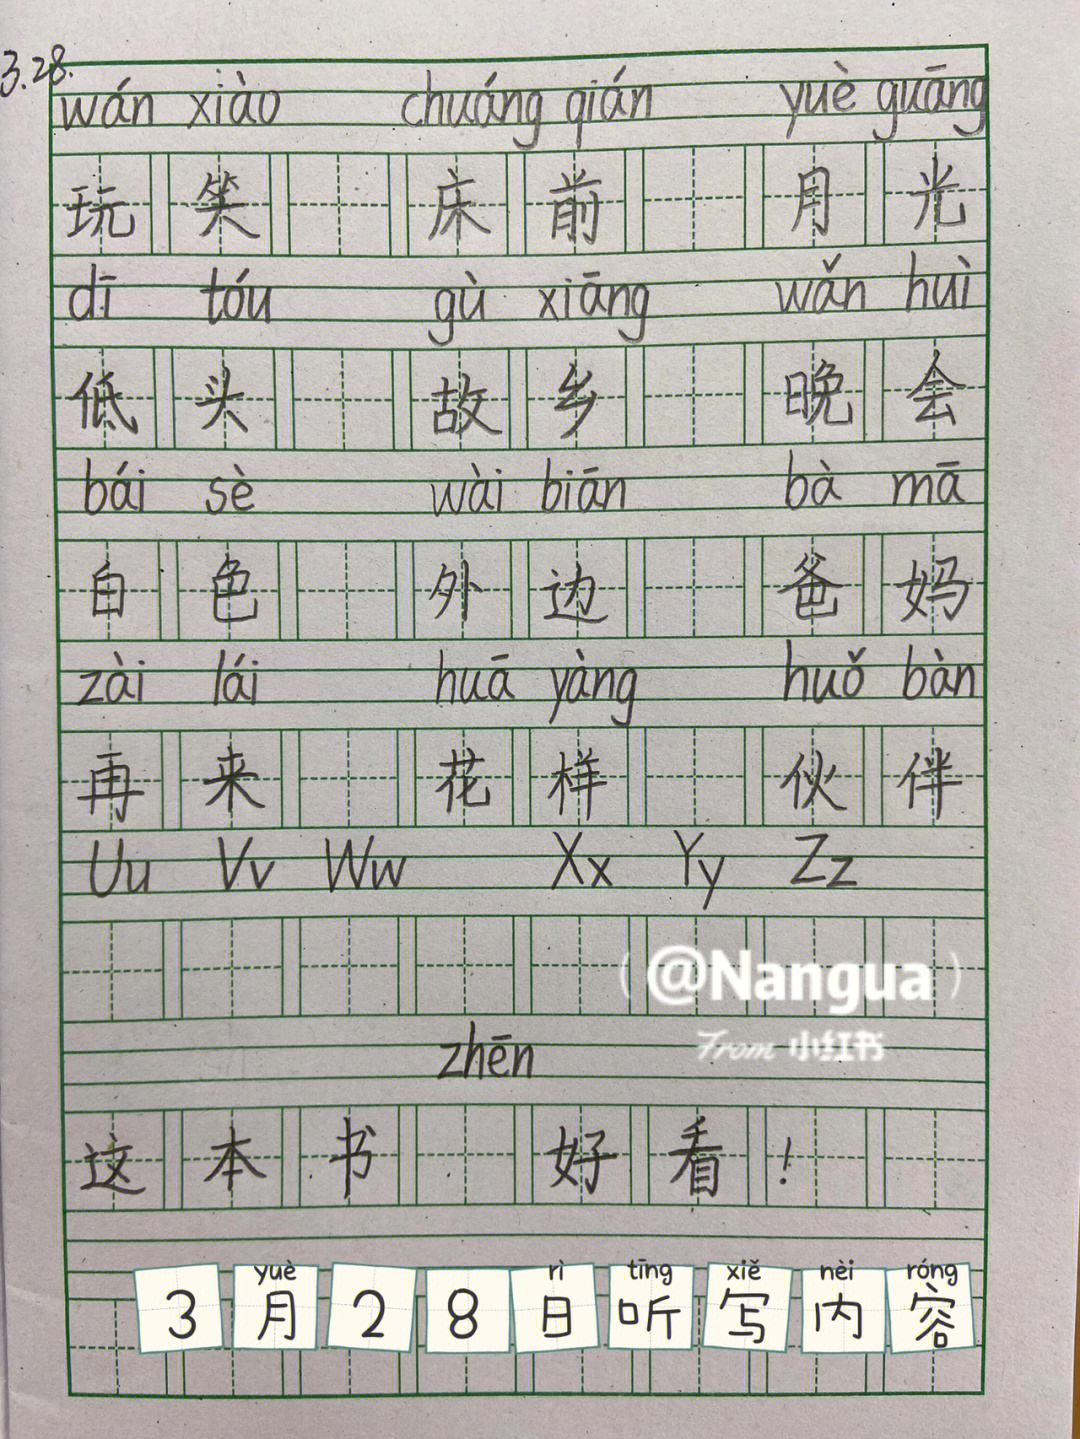 3.28.
wán xiào chuáng qián yuè guāng
玩 笑 床 前 月 光
dī tóu gù xiāng wǎn huì
低 头 故 乡 晚 会
bái sè wài biān bà mā
白 色 外 边 爸 妈
zài lái huā yàng huǒ bàn
再 来 花 样 伙 伴
Uu Vv Ww Xx Yy Zz
(@Nangua)
From 小红书
zhēn
这 本 书 好 看 !
yuè rì tīng xiě nèi róng
3 月 2 8 日 听 写 内 容